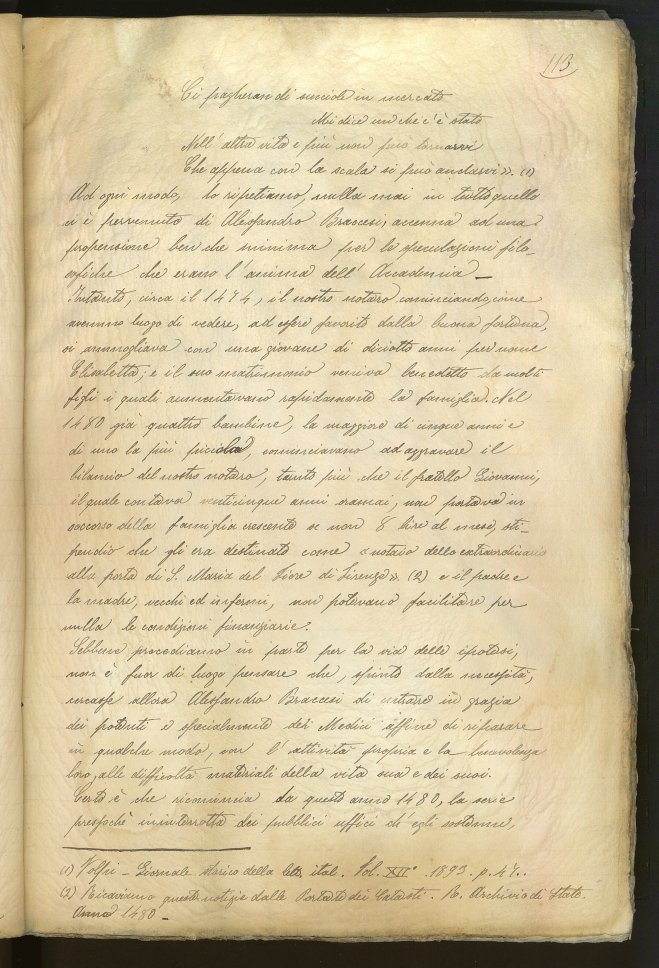 113
Ci pagheran di succiole in mercato
Mi dice un che c'è stato
Nell' altra vita e più non può tornarvi
Che appena con la scala si può andarvi». (1)
Ad ogni modo, lo ripetiamo, nulla mai in tutto quello
ci è pervenuto di Alessandro Braccesi, accenna ad una
propensione ben che minima per le speculazioni filo-
sofiche che erano l'anima dell' Accademia —
Intanto, circa il 1474, il nostro notaro, cominciando, come
avemmo luogo di vedere, ad essere favorito dalla buona fortuna,
si ammogliava con una giovane di diciotto anni per nome
Elisabetta; e il suo matrimonio veniva benedetto da molti
figli i quali aumentavano rapidamente la famiglia. Nel
1480 già quattro bambine, la maggiore di cinque anni e
di uno la più piccola, cominciavano ad aggravare il
bilancio del nostro notaro, tanto più che il fratello Giovanni,
il quale contava venticinque anni oramai, non portava in
soccorso della famiglia crescente se non 8 lire al mese, sti-
pendio che gli era destinato come «notaio dello extraordinario
alla porta di S. Maria del Fiore di Firenze» (2) e il padre e
la madre, vecchi ed infermi, non potevano facilitare per
nulla le condizioni finanziarie.
Sebbene procediamo in parte per la via delle ipotesi,
non è fuor di luogo pensare che, spinto dalla necessità,
cercasse allora Alessandro Braccesi di entrare in grazia
dei potenti e specialmente dei Medici affine di riparare
in qualche modo, con l' attività propria e la benevolenza
loro, alle difficoltà materiali della vita sua e dei suoi.
Certo è che ricomincia da questo anno 1480, la serie
pressochè ininterrotta dei pubblici uffici ch' egli sostenne,
(1) Volpi — Giornale storico della lett. ital. Vol. XII° . 1893. p. 47..
(2) Ricaviamo queste notizie dalle Portate dei Catasti. R. Archivio di Stato.
Anno 1480 —